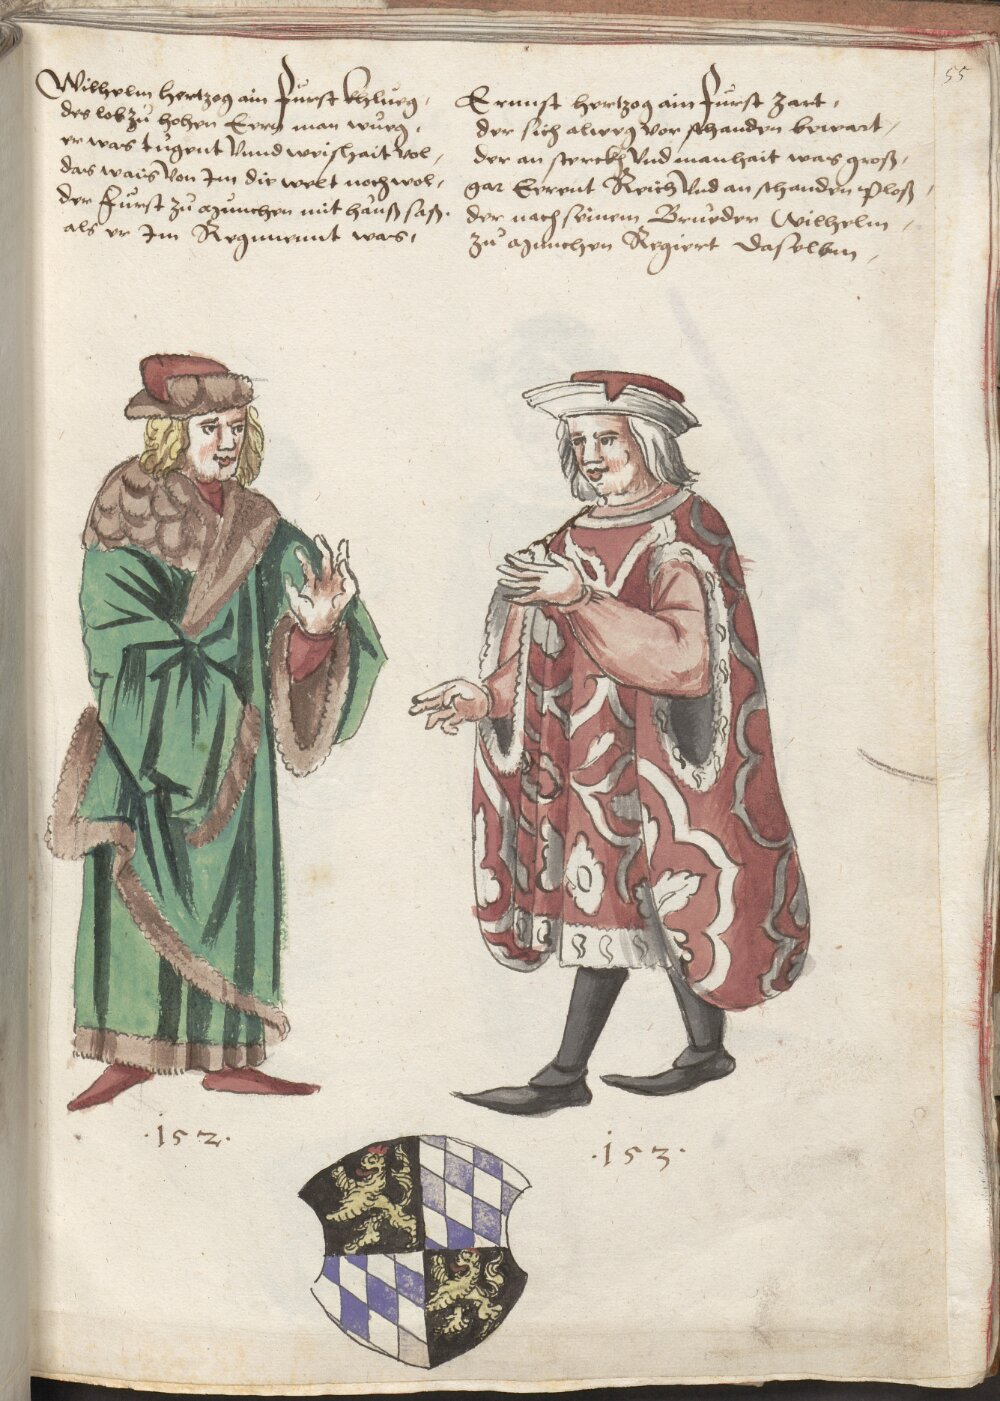 55
Wilhelm hertzog ain Fürst khlueg,
des lob zu hohen Eern man wueg,
er was tugent vnnd weishait vol,
das wais von Im die welt noch wol,
der Fürst zu Munchen mit hauß saß.
als er Im Regiment was,
Ernnst hertzog ain Fürst zart,
der sich alweg vor schanden bewart,
der an sterckh vnd manhait was groß,
gar Eerent Reich vnd an schanden ploß,
der nach seinem Brueder Wilhelm,
zu Munchen Regiert daselbm,
.152.
.153.